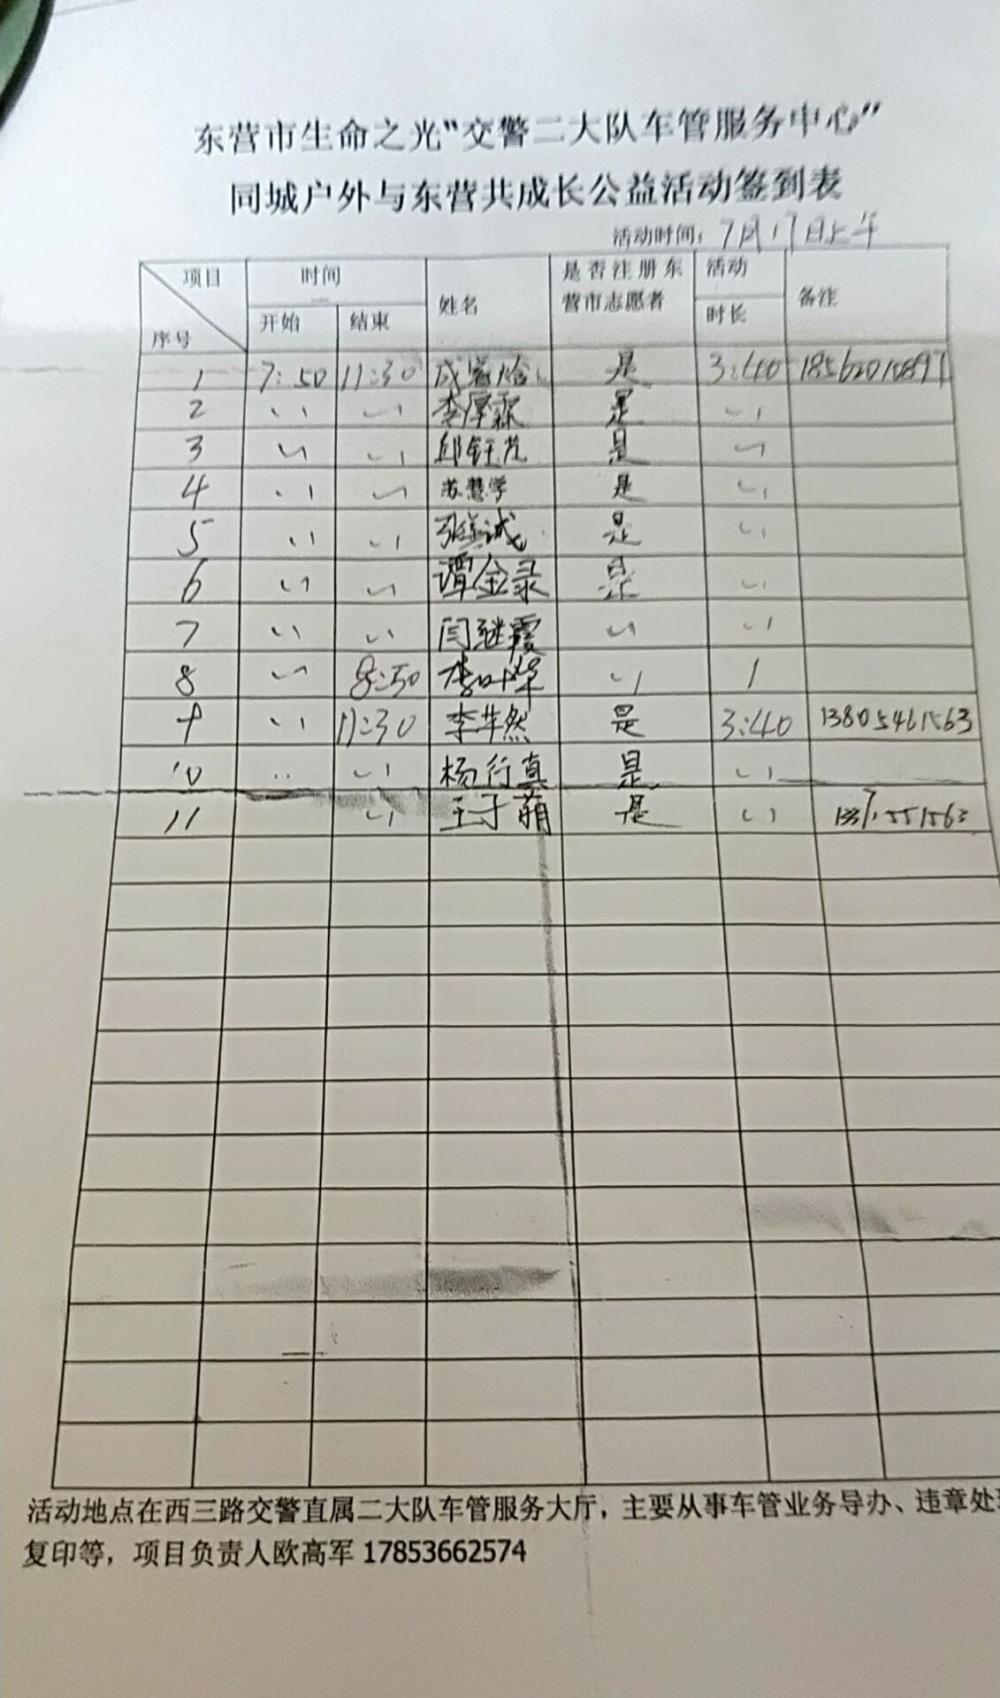 东营市生命之光“交警二大队车管服务中心”
同城户外与东营共成长公益活动签到表
活动时间：7月17日上午
项目 时间 姓名 是否注册东营市志愿者 活动时长 备注
序号 开始 结束
1 7:50 11:30 是 3:40
2 李厚霖 是
3 邱钰 是
4 苏慧学 是
5 诚 是
6 谭金录 是
7 闫继霞
8 8:50 李叶
9 11:30 李苹然 是 3:40 13805461563
10 杨行真 是
11 王子萌 是
活动地点在西三路交警直属二大队车管服务大厅，主要从事车管业务导办、违章处理
复印等，项目负责人欧高军 17853662574